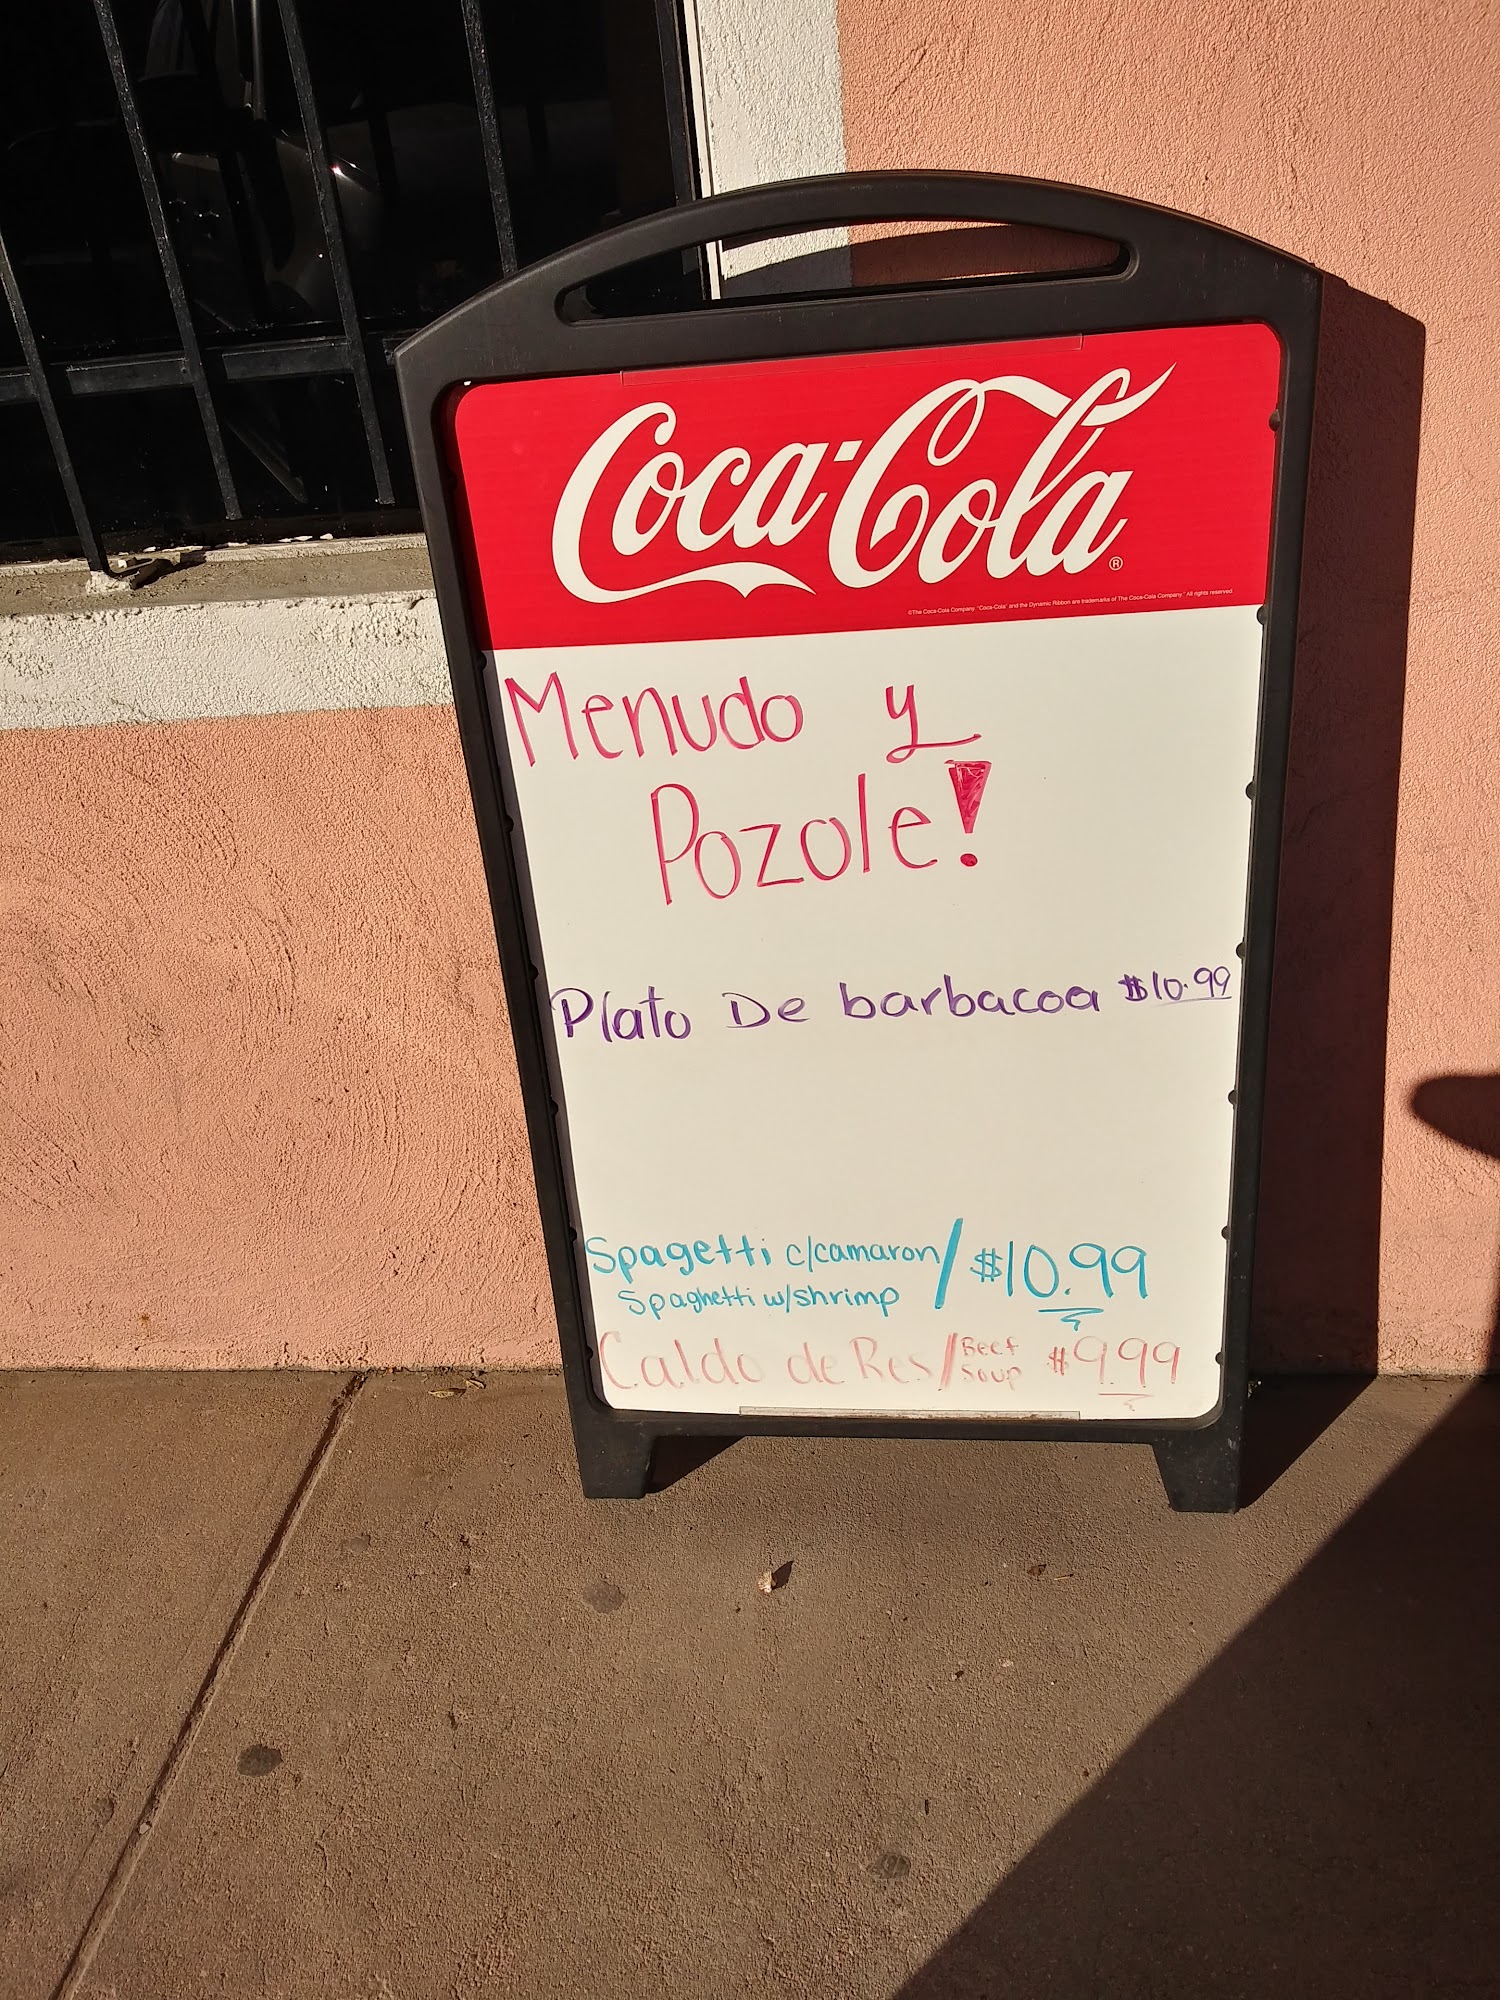 Coca-Cola®
©The Coca-Cola Company. "Coca-Cola" and the Dynamic Ribbon are trademarks of The Coca-Cola Company. All rights reserved.
Menudo y
Pozole!
Plato De barbacoa $10.99
Spagetti c/camaron/ $10.99
Spaghetti w/shrimp
Caldo de Res/Beef Soup $9.99